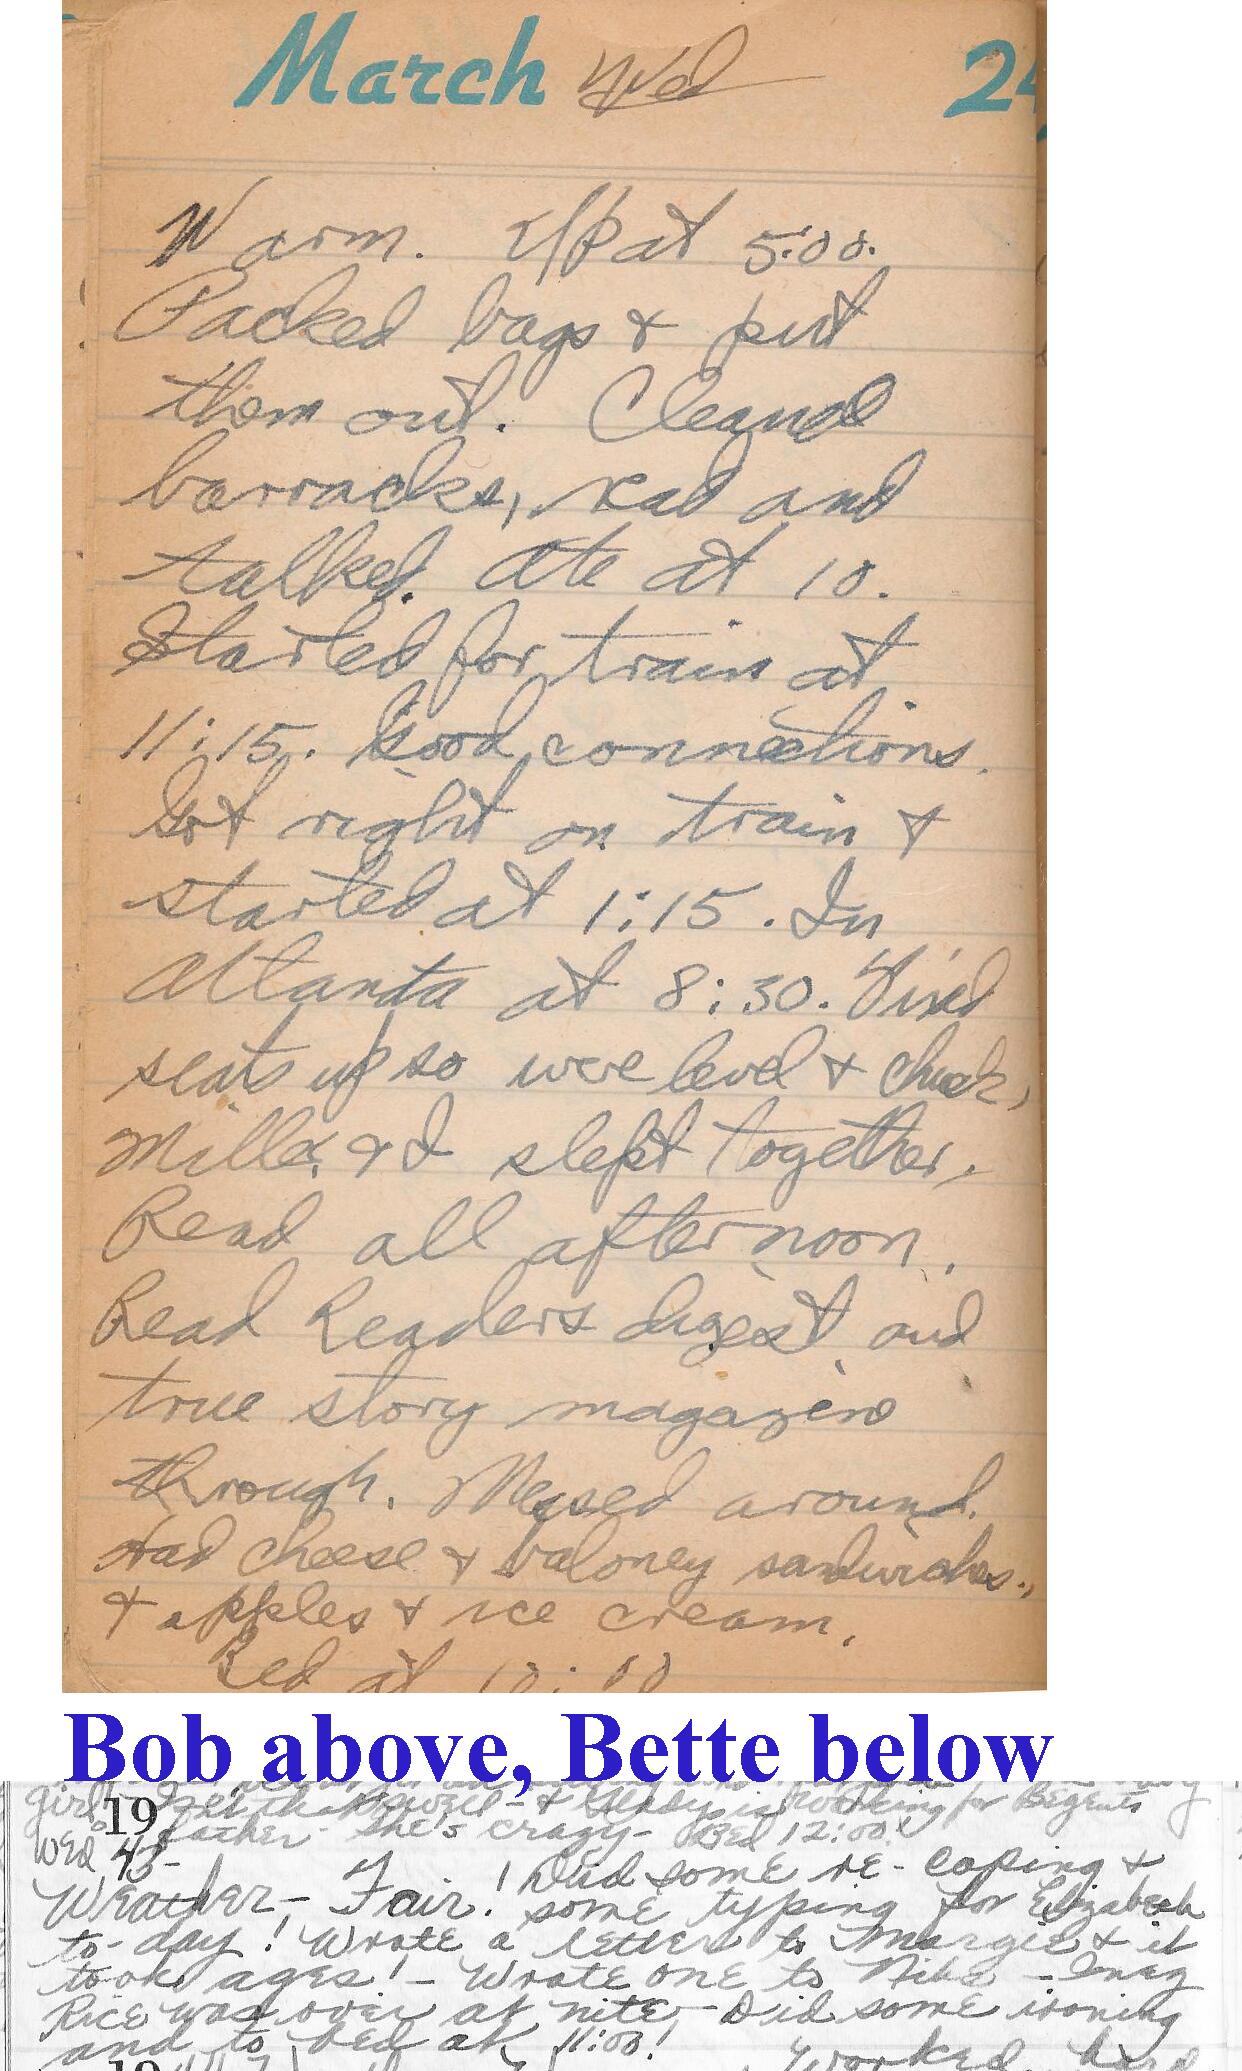 March Wed 24
Warm. Up at 5:00.
Packed bags & put
them out. Cleaned
barracks, read and
talked. Ate at 10.
Started for train at
11:15. Good connections.
Got right on train &
started at 1:15. In
Atlanta at 8:30. Fixed
seats up so were level & Chuck,
Miller & I slept together.
Read all afternoon.
Read Readers digest and
true story magazine
through. Messed around.
Had cheese & baloney sandwiches.
& apples & ice cream.
Bed at 10:00
Bob above, Bette below
girl
19 father - she's crazy - Bed 12:00!
Wed 43-
Weather - Fair! Did some re-coping &
some typing for Elizabeth
to-day! Wrote a letter to Margie & it
took ages! - Wrote one to Mike - Inez
Rice was over at nite - Did some ironing
and to bed at 11:00!
19 Worked hard